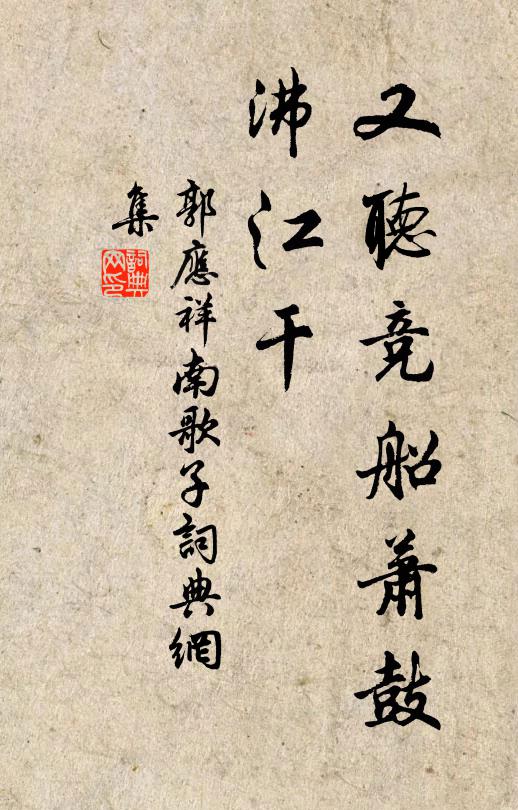 又聽竞船萧鼓
沸江干
郭應祥南歌子詞典網
集
詞典
网印